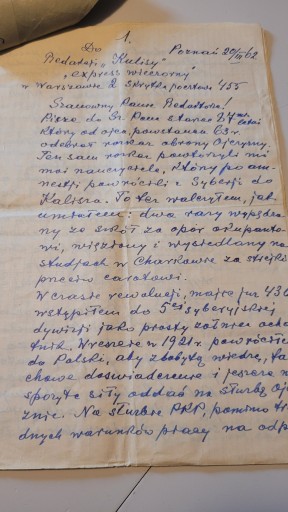 1.
Do Poznań 20/III 62
Redakcji "Kulisy"
"express wieczorny"
w Warszawie 2 skrytka pocztowa 455
Szanowny Panie Redaktorze!
Pisze do Sz. Pana starzec 87 mio letni
który od ojca, powstańca 63 r.
odebrał rozkaz obrony Ojczyzny.
Ten sam rozkaz powtórzyli mi
moi nauczyciele, którzy po am-
nestji powrócili z Syberji do
Kalisza. To też walczyłem, jak
umiałem: dwa razy wypędza
ny ze szkół za opór okupanto-
wi, więziony i wysiedlany na
studjach w Charkowie za strejki
przeciw caratowi.
W czasie rewolucji, mając już 43 l
wstąpiłem do 5ej syberyjskiej
dywizji jako prosty żołnierz ocho
tnik. Wreszcie w 1921 r. powróciłem
do Polski, aby zdobytą wiedzę, fa
chowe doświadczenie i jeszcze n
spożyte siły oddać na służbę Oj
znie. Na służbie PKP, pomimo tr
dnych warunków pracy na odp